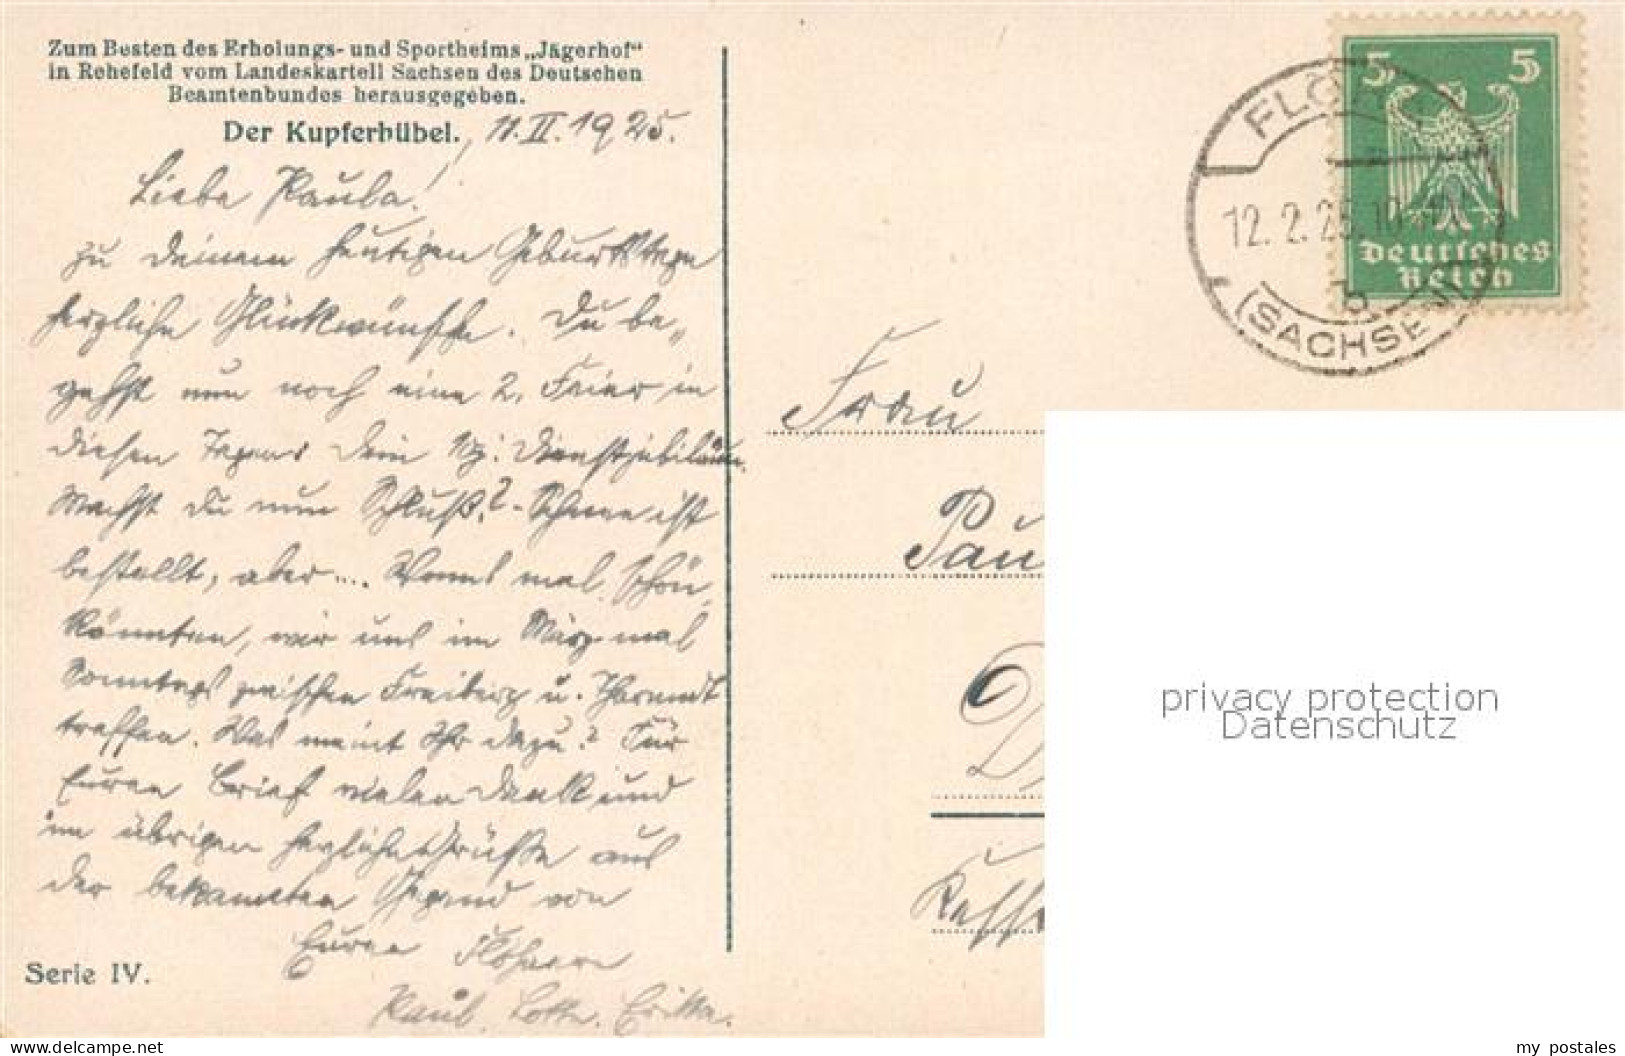 Zum Besten des Erholungs- und Sportheims „Jägerhof"
in Rehefeld vom Landeskartell Sachsen des Deutschen
Beamtenbundes herausgegeben.
Der Kupferhübel.
11.II.1925.
Liebe Paula!
zu deinem heutigen Geburtstage
herzliche Glückwünsche. Du be„
gehst nun noch eine 2. Feier in
diesen Tagen: Dein Dienstjubiläum.
Machst du nun Schluß? - Schnee ist
bestellt, aber .... Wenns mal schön,
könnten, wir uns im März mal
Sonntags zwischen Freiberg u. Tharandt
treffen. Was meint Ihr dazu? Für
Euren Brief vielen Dank und
im übrigen herzliche Grüße aus
der bekannten Gegend von
Euren Flöhaern
Paul, Lotte,
Serie IV.
5 5
Deutsches
Reich
FLÖHA
12.2.25.10
b
(SACHSEN)
Frau
Pau
D
privacy protection
Datenschutz
www.delcampe.net
my postales